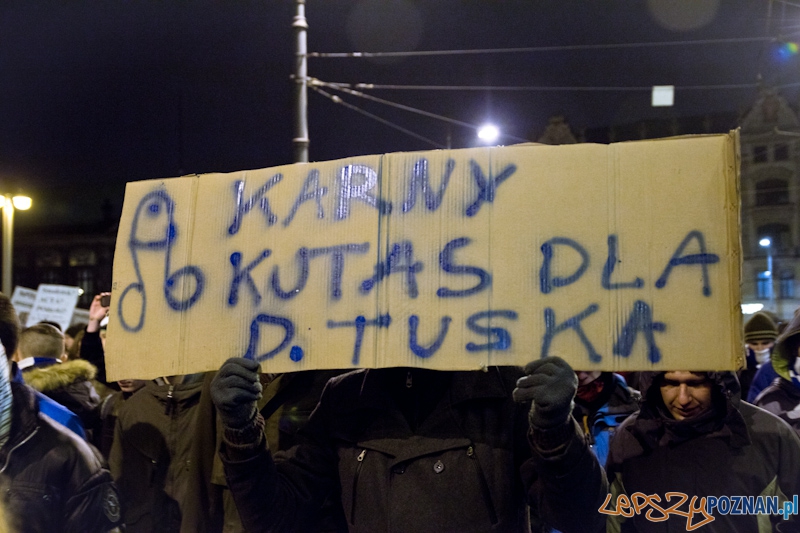 KARNY
KUTAS DLA
D. TUSKA
LEPSZYPOZNAN.pl